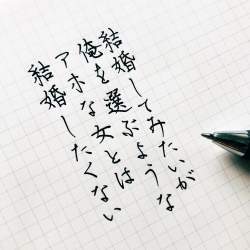 結婚してみたいが
俺を選ぶような
アホな女とは
結婚したくない